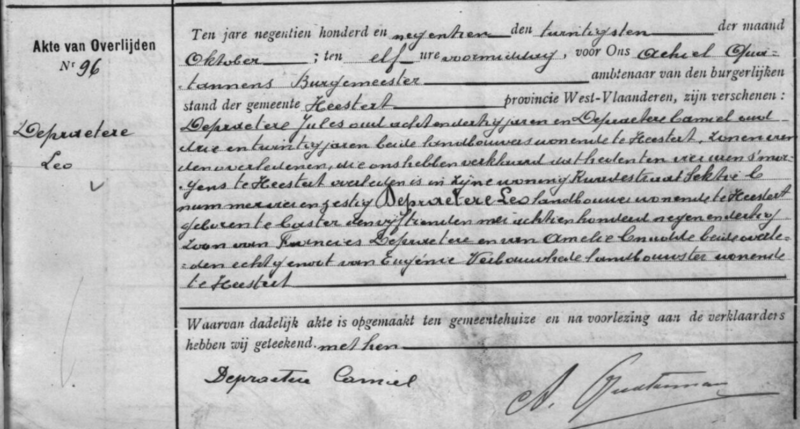 Akte van Overlijden
Nr 96
Depraetere
Leo
Ten jare negentien honderd en negentien den twintigsten der maand
Oktober ; ten elf ure voormiddag, vóór Ons Achiel Qua-
tannens Burgemeester ambtenaar van den burgerlijken
stand der gemeente Heestert provincie West-Vlaanderen, zijn verschenen :
Depraetere Jules oud achtendertig jaren en Depraetere Camiel oud
drie en twintig jaren beide landbouwers wonende te Heestert, zonen van
den overledenen, die ons hebben verklaard dat heden ten vier uren s'mor-
gens te Heestert overleden is in zijne woning Kwadestraat Sektie C
nummer vier en zestig Depraetere Leo landbouwer wonende te Heestert
geboren te Caster den vijftienden mei achttienhonderd negenendertig
zoon van Francies Depraetere en van Amelie beide overle-
den echtgenoot van Eugénie Verbauwhede landbouwster wonende
te Heestert
Waarvan dadelijk akte is opgemaakt ten gemeentehuize en na voorlezing aan de verklaarders
hebben wij geteekend. met hen
Depraetere Camiel
A.